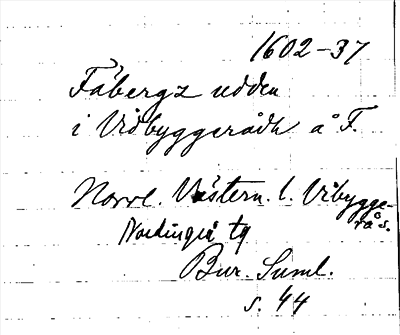 1602-37
Fåbergz udden
i Vidbyggerådh å F.
Norrl. Västern. l. Vibygge-
rå s.
Nordingrå tg
Bur. Suml.
s. 44